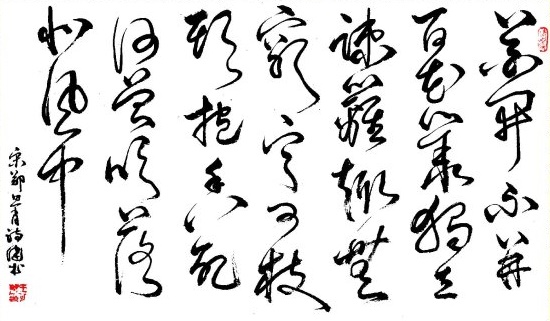 花開不并
百花叢獨立
疎籬趣無
窮寧可枝
頭抱香死
何曾吹落
北風中
宋鄭思肖詩